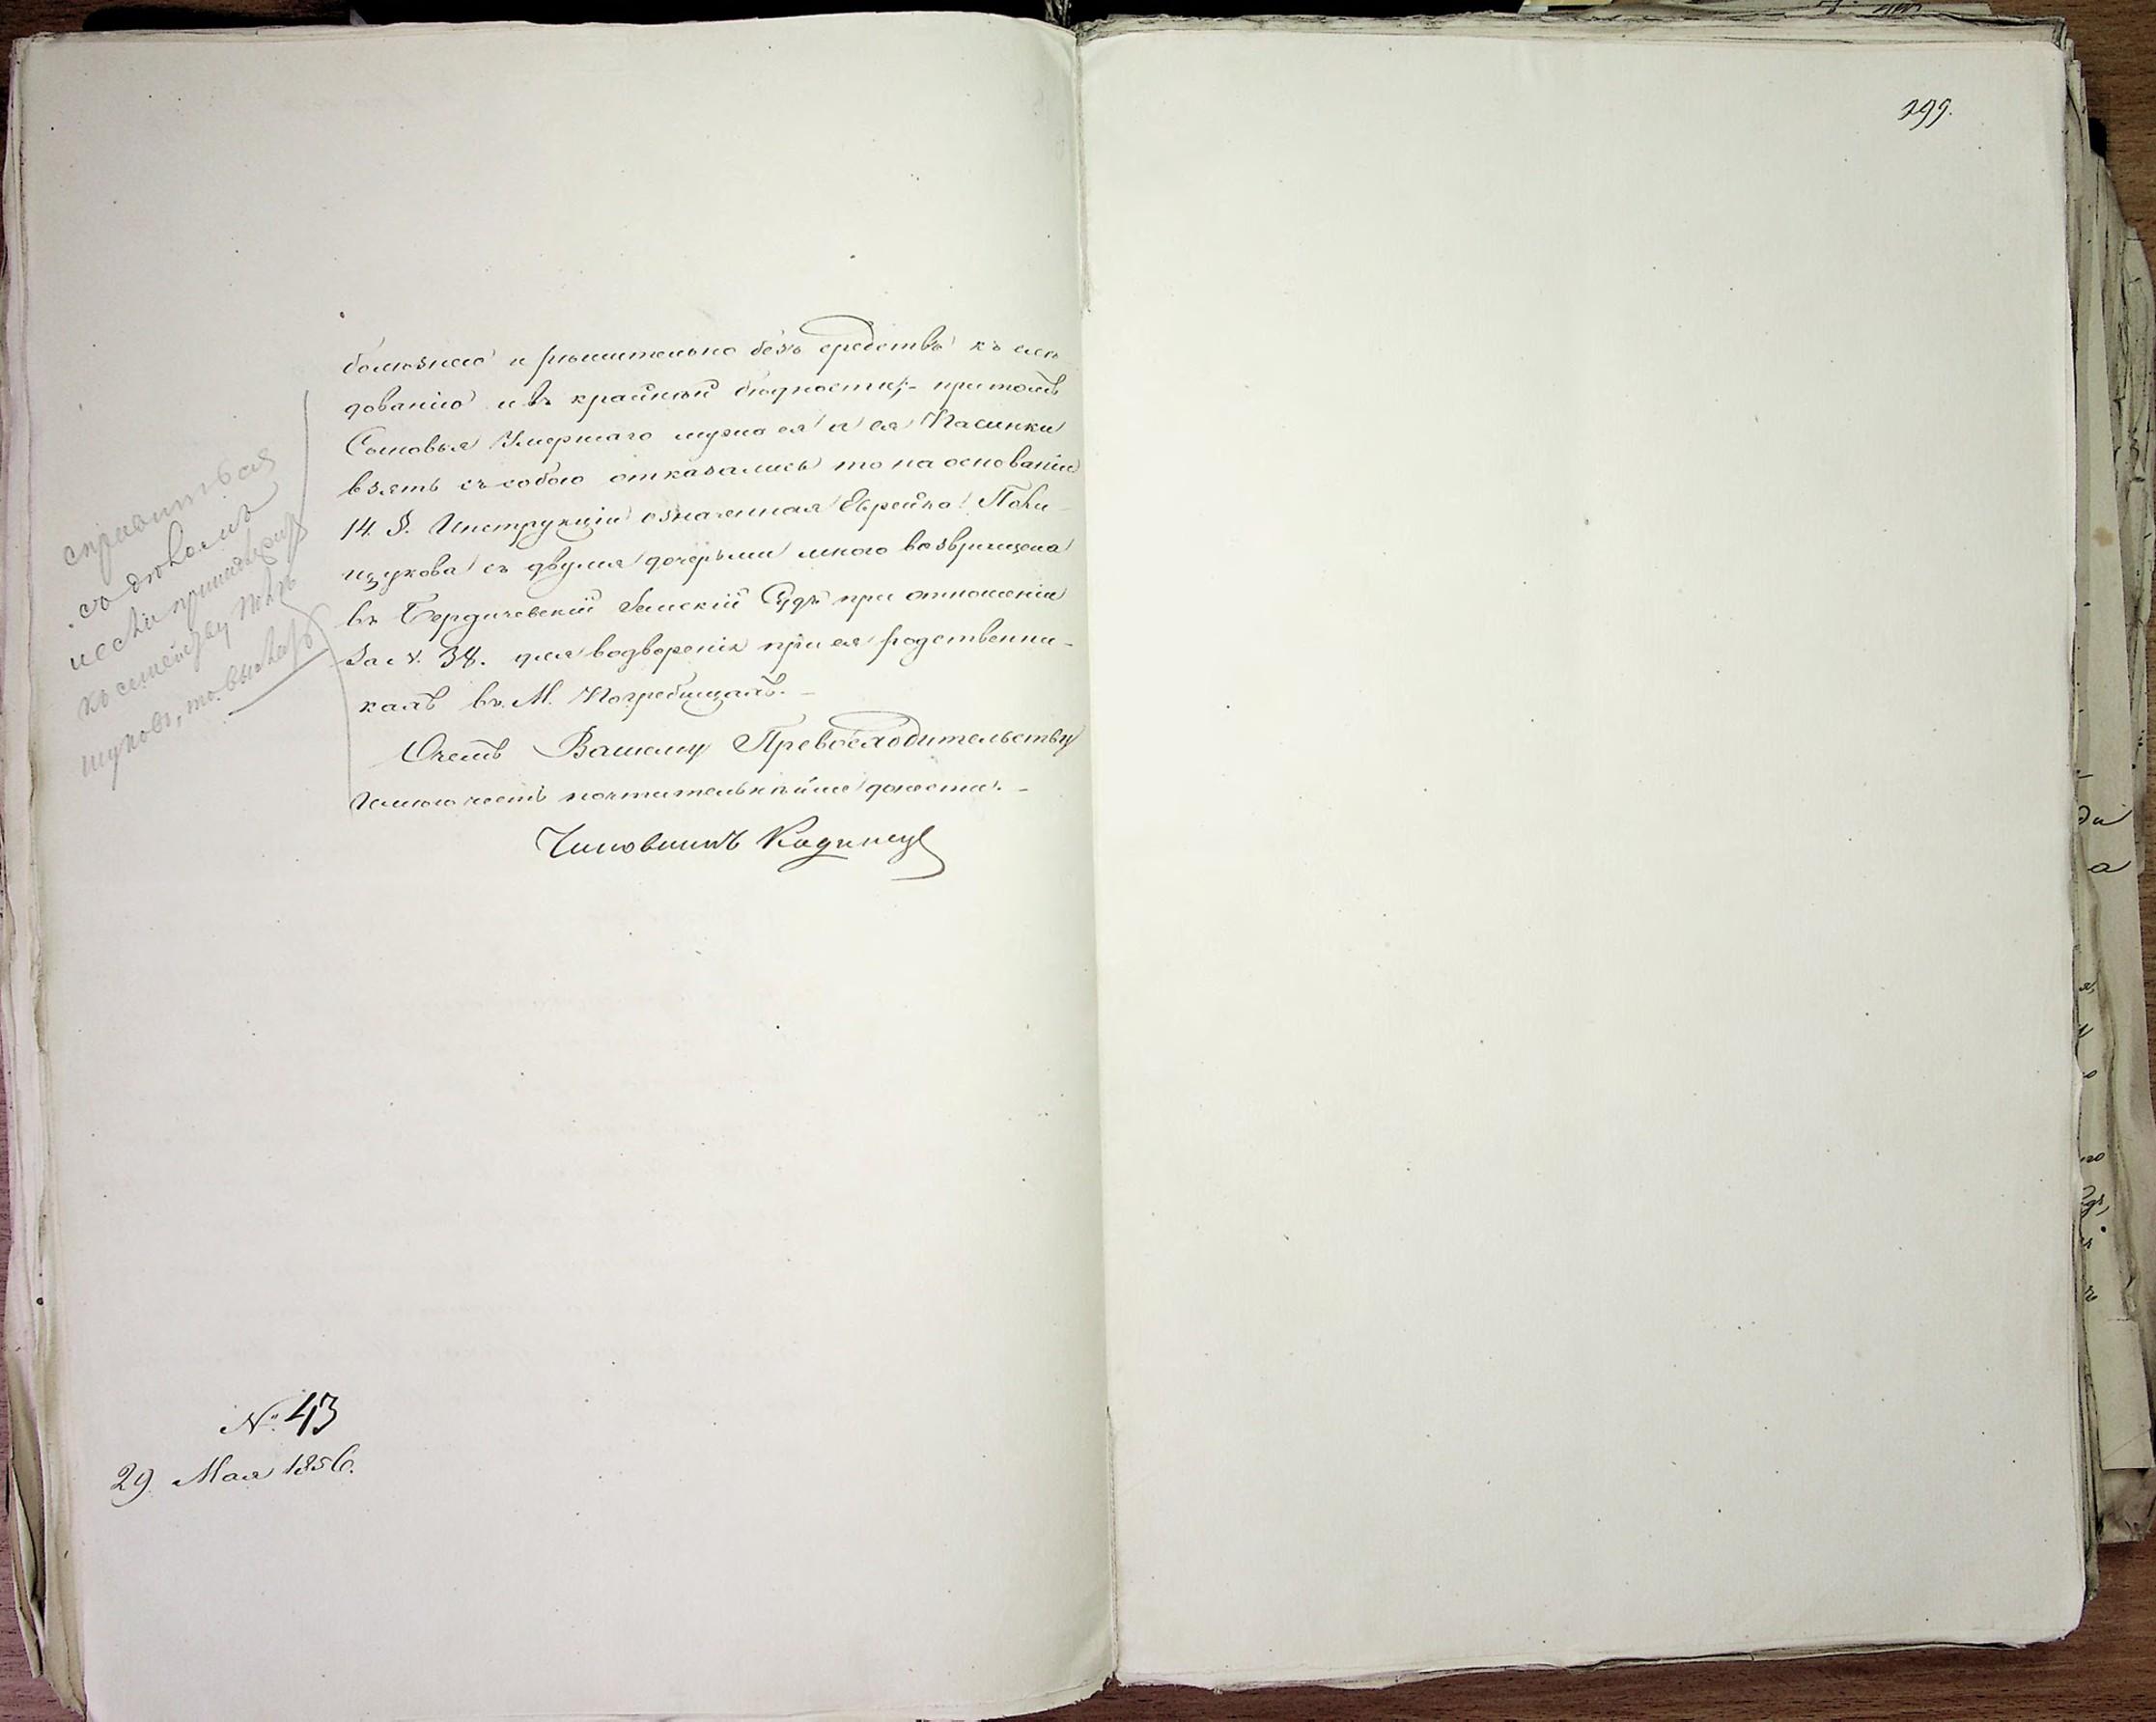 299.
болѣзнею и рѣшительно безъ средствъ къ слѣ
дованію и въ крайнѣй бѣдности; - притомъ
Сыновья Умершаго мужа ея а ея Пасинки
взять съ собою отказались то на основаніи
14. §. Инструкціи означенная Еврейка
съ двумя дочерьми мною возвращена
въ Бердичевскій Земскій Судъ при отношеніи
за № 38. для водворенія при ея родственни-
кахъ въ М. Погребищахъ. -
Очемъ Вашему Превосходительству
Имѣю честь почтительнѣйше донести. -
Чиновникъ
справиться
съ дѣломъ
и если
къ семейству
щуковъ, то
№ 43
29 Мая 1856.